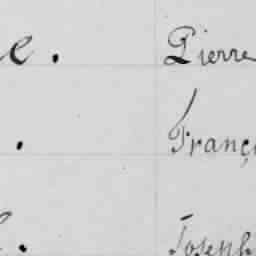 e. Pierre
. Franç
. Joseph